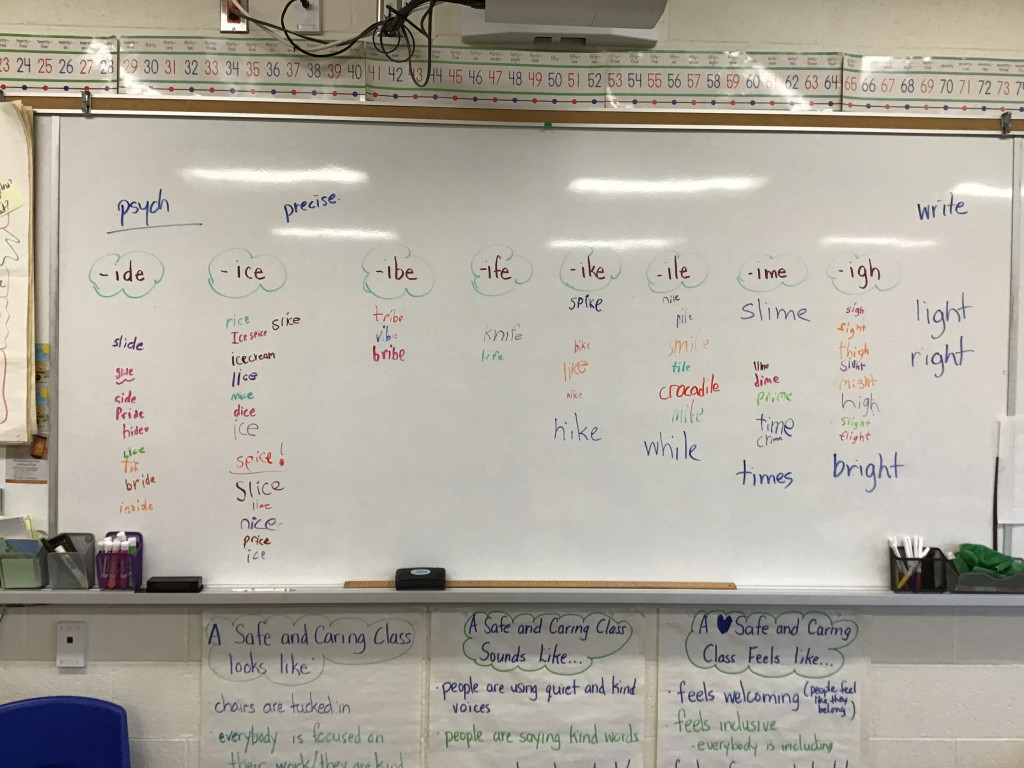 23 24 25 26 27 28 29 30 31 32 33 34 35 36 37 38 39 40 41 42 43 44 45 46 47 48 49 50 51 52 53 54 55 56 57 58 59 60 61 62 63 64 65 66 67 68 69 70 71 72 73
psych
precise.
write
-ide
slide
glide
side
Pride
hider
bride
inside
-ice
rice
slice
Ice spice
icecream
lice
mice
dice
ice
spice!
Slice
nice
price
ice
-ibe
tribe
vibe
bribe
-ife
knife
life
-ike
spike
bike
like
hike
hike
-ile
mile
pile
smile
tile
crocadile
mile
while
-ime
slime
lime
dime
prime
time
crime
times
-igh
sigh
fight
thigh
sight
might
high
slight
flight
bright
light
right
A Safe and Caring Class
looks like:
chairs are tucked in
everybody is focused on
their work/they are kind
A Safe and Caring Class
Sounds Like...
· people are using quiet and kind
voices
· people are saying kind words
A ♥ Safe and Caring
Class Feels like...
· feels welcoming (people feel
like they
belong)
feels inclusive
· everybody is including